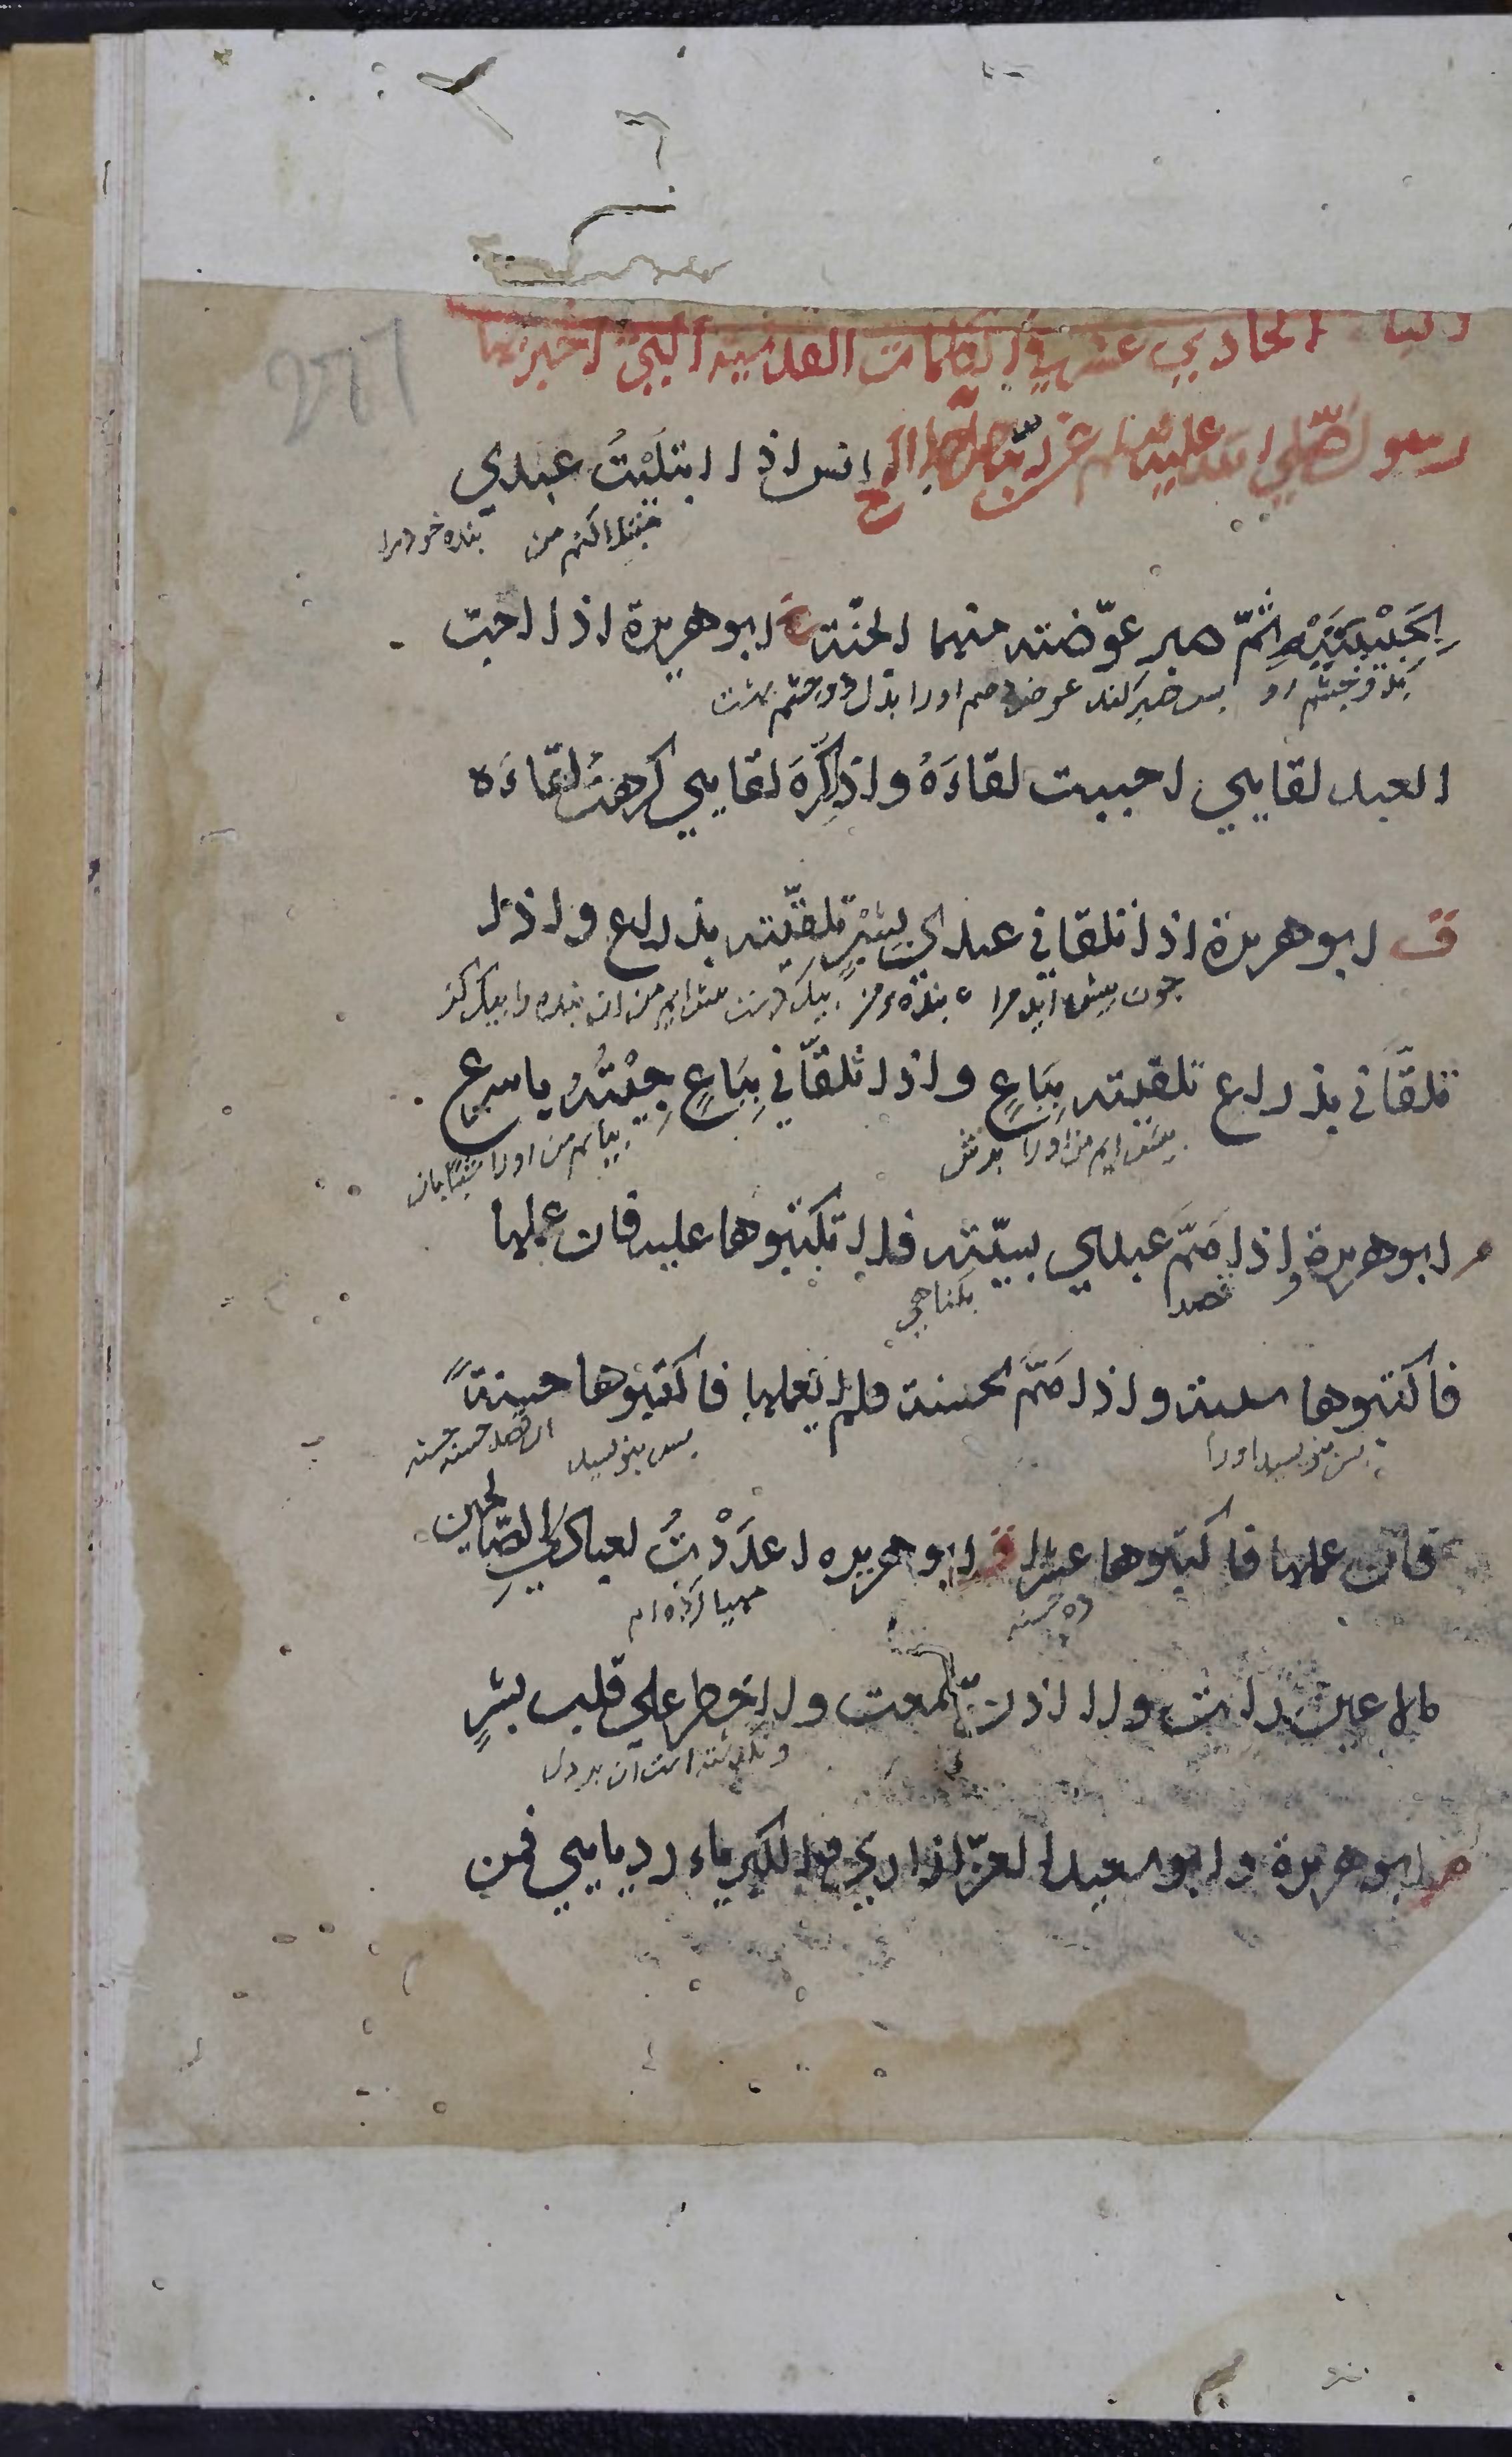 الحادي عشر في الكلمات القدسية التي اخبر بها
رسول صلي الله عليه وسلم عن ربه خ انس اذا ابتليت عبدي
كنم من بنده خود را
بحبيبتيه ثم صبر عوضته منهما الجنة ابو هريرة اذا احب
بدو چشم او پس صبر كند عوض دهم اورا بدل دو چشم بهشت
العبد لقايي احببت لقاءه واذا كره لقايي كرهت لقاءه
ق ابو هريرة اذا تلقاني عبدي بشبر تلقيته بذراع واذا
چون پيش آيد مرا بنده من بيك پيش ايم من ان بنده را بيك گز
تلقاني بذراع تلقيته بباع واذا تلقاني بباع جيته باسرع
پيش ايم من اورا بيايم من اورا شتابان
م ابو هريرة اذا هم عبدي بسيئة فلا تكتبوها عليه فان عملها
قصد
فاكتبوها سيئة واذا هم بحسنة فلم يعملها فاكتبوها حسنة
پس بنويسيد اورا پس بنويسيد
فان عملها فاكتبوها عشرا ق ابو هريره اعددت لعبادي الصالحين
ده حسنه مهيا كرده ام
مالا عين رات ولا اذن سمعت ولا خطر علي قلب بشر
و نگذشته است ان بر دل
م ابو هريرة وابو سعيد العز ازاري والكبرياء ردايي فمن